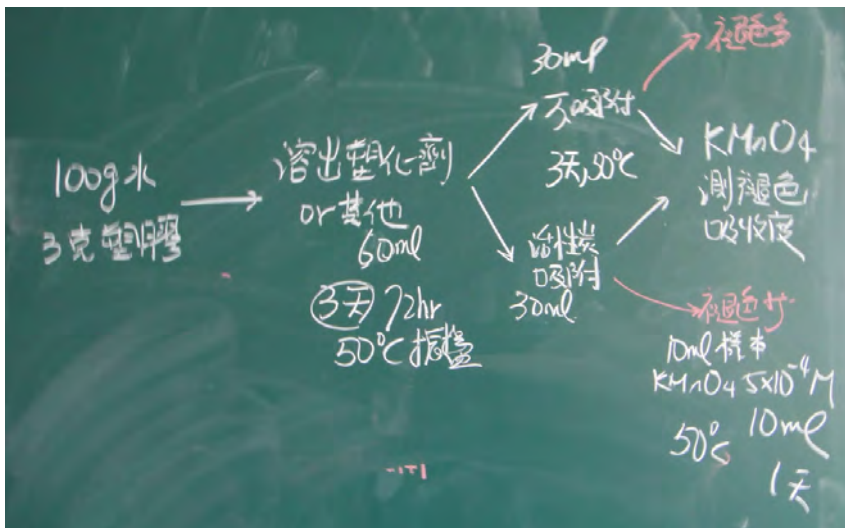 100g水
3克塑膠
溶出塑化劑
or其他
60ml
3天 72hr
50°C振盪
30ml
不吸附
3天,30°C
活性炭
吸附
30ml
褪色多
KMnO4
測褪色
吸收度
褪色少
10ml樣本
KMnO4 5x10⁻⁴M
10ml
50°C
1天